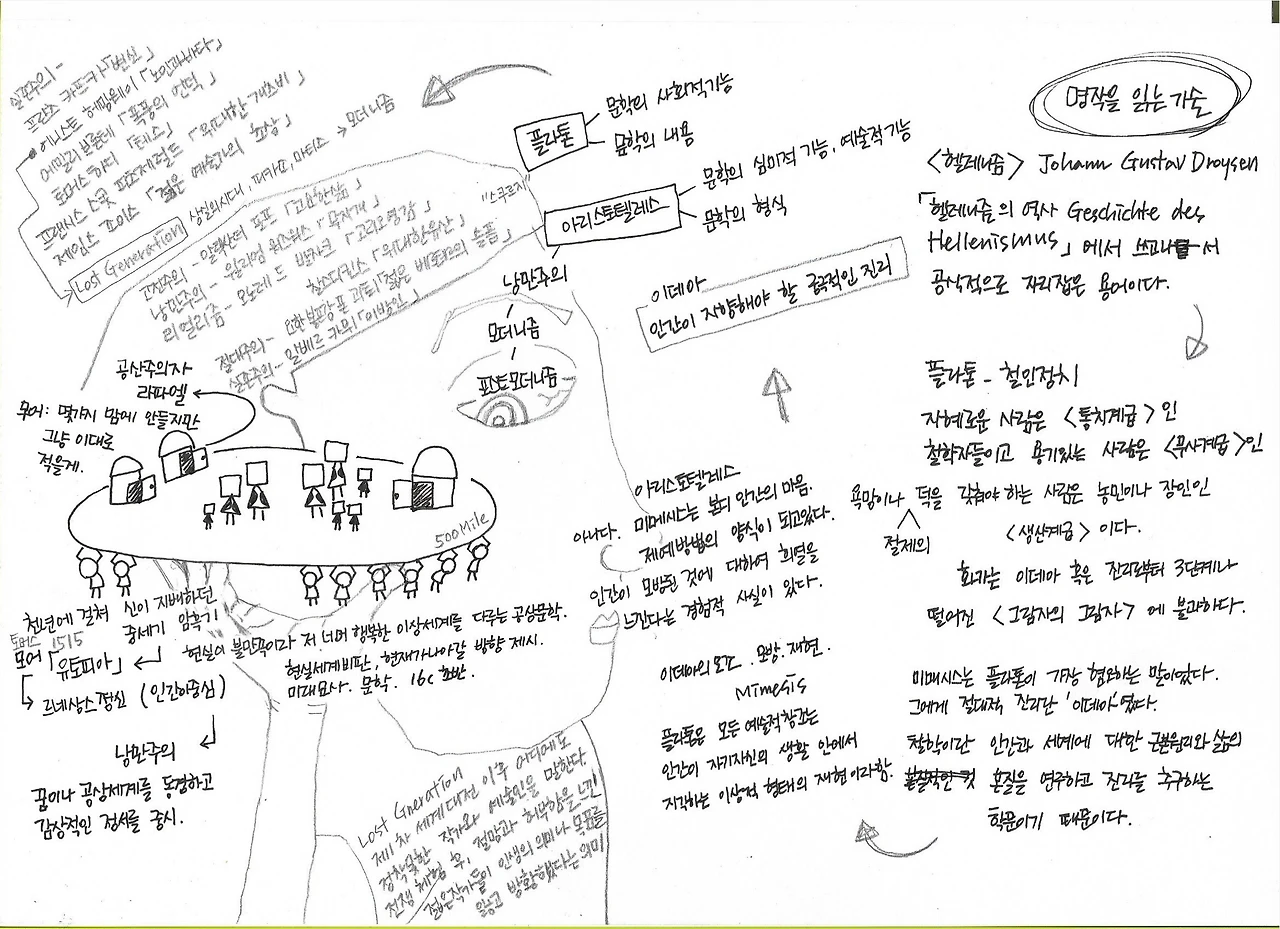 명작을 읽는 기술
<헬레니즘> Johann Gustav Droysen
「헬레니즘의 역사 Geschichte des
Hellenismus」에서 쓰고나서
공식적으로 자리잡은 용어이다.
플라톤 - 철인정치
지혜로운 사람은 <통치계급>인
철학자들이고 용기있는 사람은 <무사계급>인
욕망이나 덕을 갖춰야 하는 사람은 농민이나 장인인
절제의
<생산계급>이다.
화가는 이데아 혹은 진리로부터 3단계나
떨어진 <그림자의 그림자>에 불과하다.
미메시스는 플라톤이 가장 혐오하는 말이었다.
그에게 절대적 진리란 '이데아'였다.
철학이란 인간과 세계에 대한 근본원리와 삶의
본질적인 것 본질을 연구하고 진리를 추구하는
학문이기 때문이다.
이데아의 모방. 재현.
Mimesis
플라톤은 모든 예술적 창조는
인간이 자기자신의 생활 안에서
지각하는 이상적 형태의 재현이라함.
아리스토텔레스
아니다. 미메시스는 본디 인간의 마음.
제예방법의 양식이 되고있다.
인간이 모방된 것에 대하여 희열을
느낀다는 경험적 사실이 있다.
이데아
인간이 지향해야 할 궁극적인 진리
플라톤
문학의 사회적기능
문학의 내용
아리스토텔레스
문학의 심미적 기능, 예술적기능
문학의 형식
낭만주의
모더니즘
포스트모더니즘
실존주의-
프란츠 카프카「변신」
어니스트 헤밍웨이「노인과바다」
에밀리 브론테「폭풍의 언덕」
토머스 하디「테스」
프랜시스 스콧 피츠제럴드「위대한 개츠비」
제임스 조이스「젊은 예술가의 초상」
Lost Generation 상실의시대, 피카소, 마티스 → 모더니즘
고전주의 - 알렉산더 포프「고요한삶」
낭만주의 - 윌리엄 워즈워스「무지개」
리얼리즘 - 오노레 드 발자크「고리오영감」
찰스디킨스「위대한유산」 "스쿠르지"
절대주의- 요한 볼프강 폰 괴테「젊은 베르테르의 슬픔」
실존주의- 알베르 카뮈「이방인」
공산주의자
라파엘
모어: 몇가지 맘에 안들지만
그냥 이대로
적을게.
500Mile
천년에 걸쳐 신이 지배하던
중세기 암흑기
토머스 1515
모어「유토피아」
르네상스정신 (인간이중심)
낭만주의
꿈이나 공상세계를 동경하고
감상적인 정서를 중시.
현실이 불만족이라 저 너머 행복한 이상세계를 다루는 공상문학.
현실세계비판, 현재가나아갈 방향 제시.
미래묘사. 문학. 16c 초반.
Lost Gneration
제1차 세계대전 이후 어디에도
정착못한 작가와 예술인을 말한다
전쟁 체험 후, 절망과 허무함을 느낀
젊은작가들이 인생의 의미나 목표를
잃고 방황했다는 의미